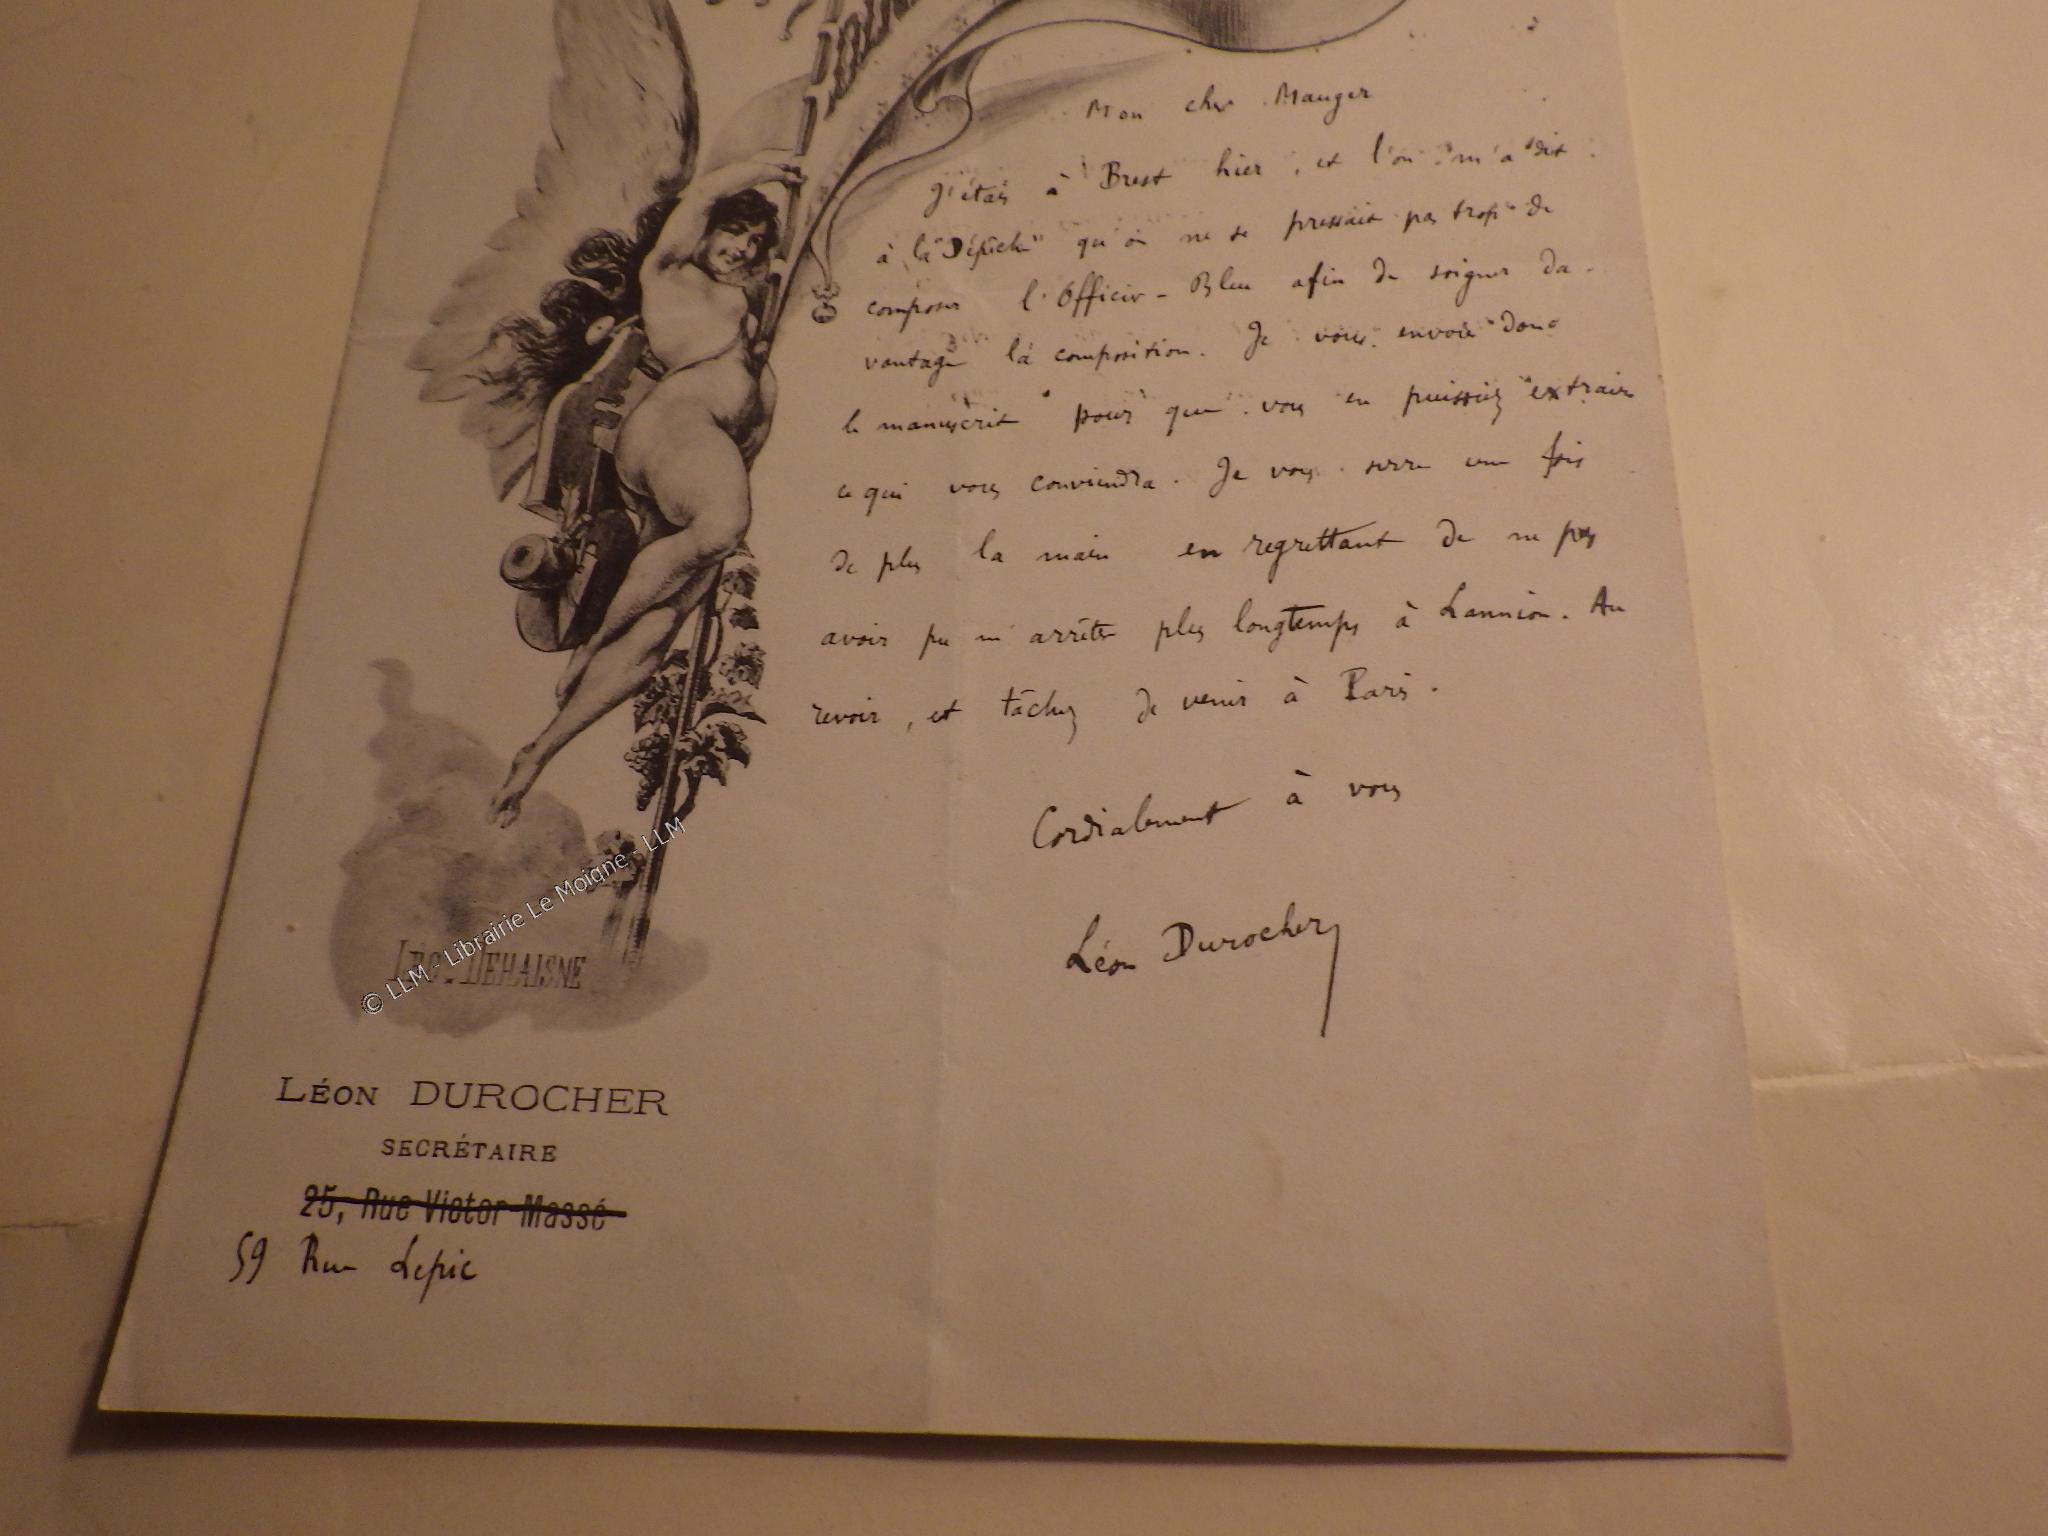 Mon cher Mauger
J'étais à Brest hier, et l'on m'a dit
à la "Dépêche" qu'on ne se pressait pas trop de
composer l'Officier-Bleu afin de soigner da-
vantage la composition. Je vous envoie donc
le manuscrit pour que vous en puissiez extraire
ce qui vous conviendra. Je vous serre une fois
de plus la main en regrettant de ne pas
avoir pu m'arrêter plus longtemps à Lannion. Au
revoir, et tâchez de venir à Paris.
Cordialement à vous
Léon Durocher
LÉO. DEHAISNE
© LLM - Librairie Le Moigne - LLM
LÉON DUROCHER
SECRÉTAIRE
25, Rue Victor Massé
59 Rue Lepic